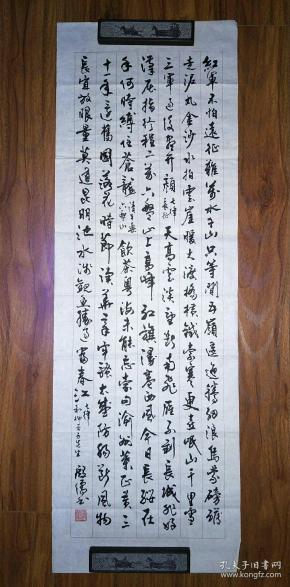 红军不怕远征难万水千山只等闲五岭逶迤腾细浪乌蒙磅礴
走泥丸金沙水拍云崖暖大渡桥横铁索寒更喜岷山千里雪
三军过后尽开颜七律长征天高云淡望断南飞雁不到长城非好
汉屈指行程二万六盘山上高峰红旗漫卷西风今日长缨在
手何时缚住苍龙清平乐六盘山饮茶粤海未能忘索句渝州叶正黄三
十一年还旧国落花时节读华章牢骚太盛防肠断风物
长宜放眼量莫道昆明池水浅观鱼胜过富春江七律和柳亚子先生
孔夫子旧书网